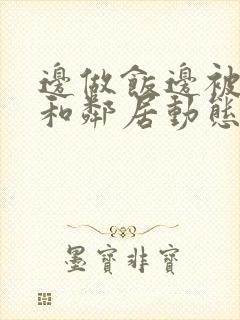 邊做飯邊被
和鄰居動態
墨寶非寶